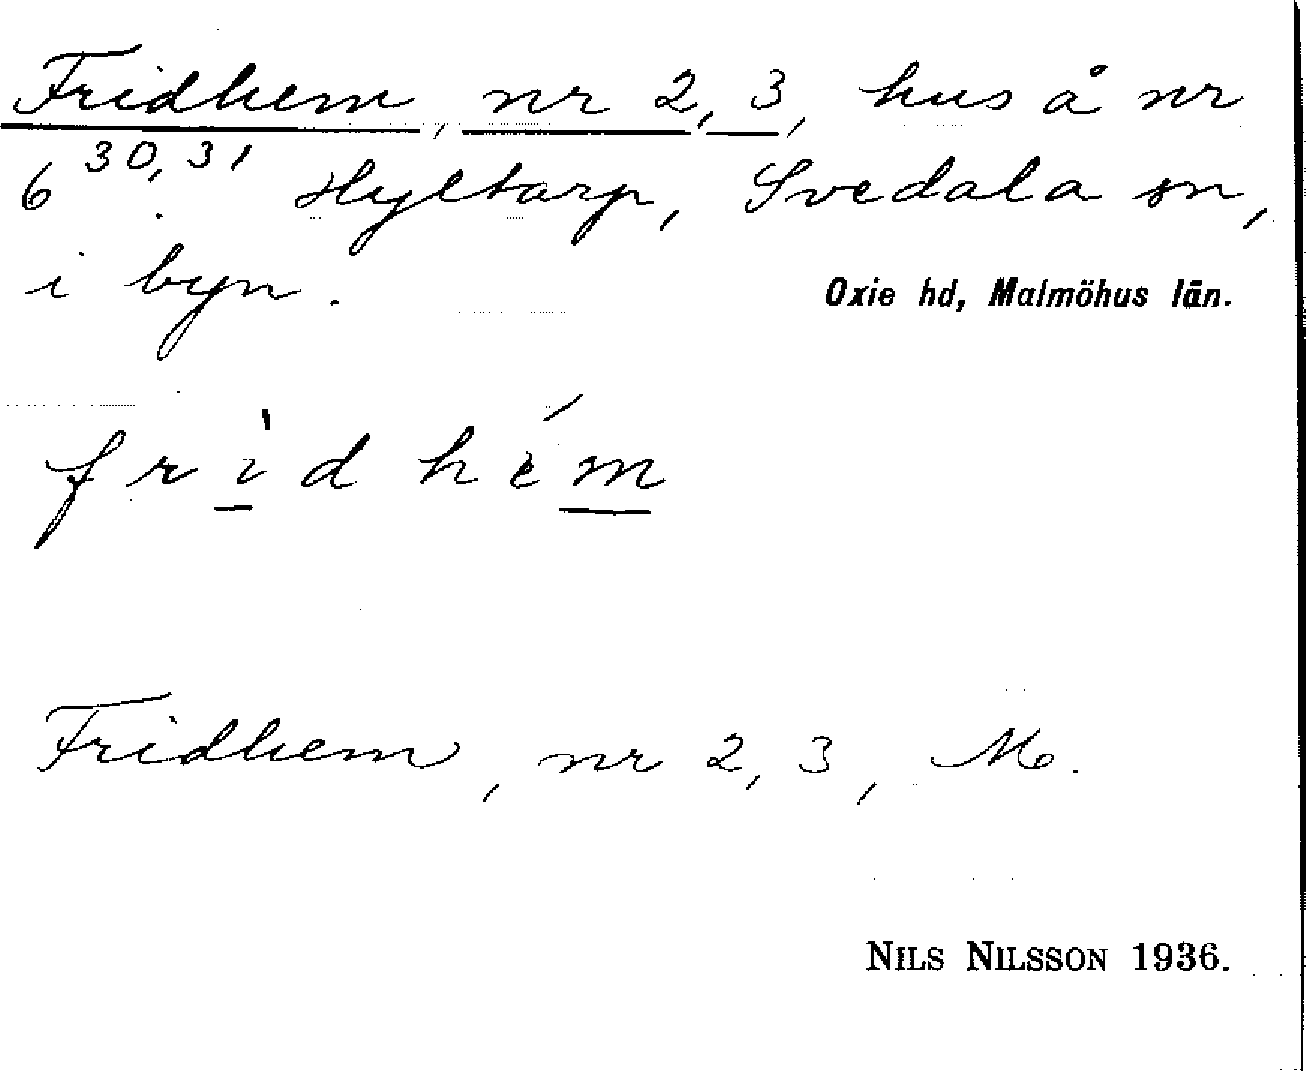 Fridhem, nr 2, 3, hus å nr
6 30, 31 Hyltarp, Svedala sn,
i byn.
Oxie hd, Malmöhus län.
frìdhém
Fridhem, nr 2, 3, M.
NILS NILSSON 1936.